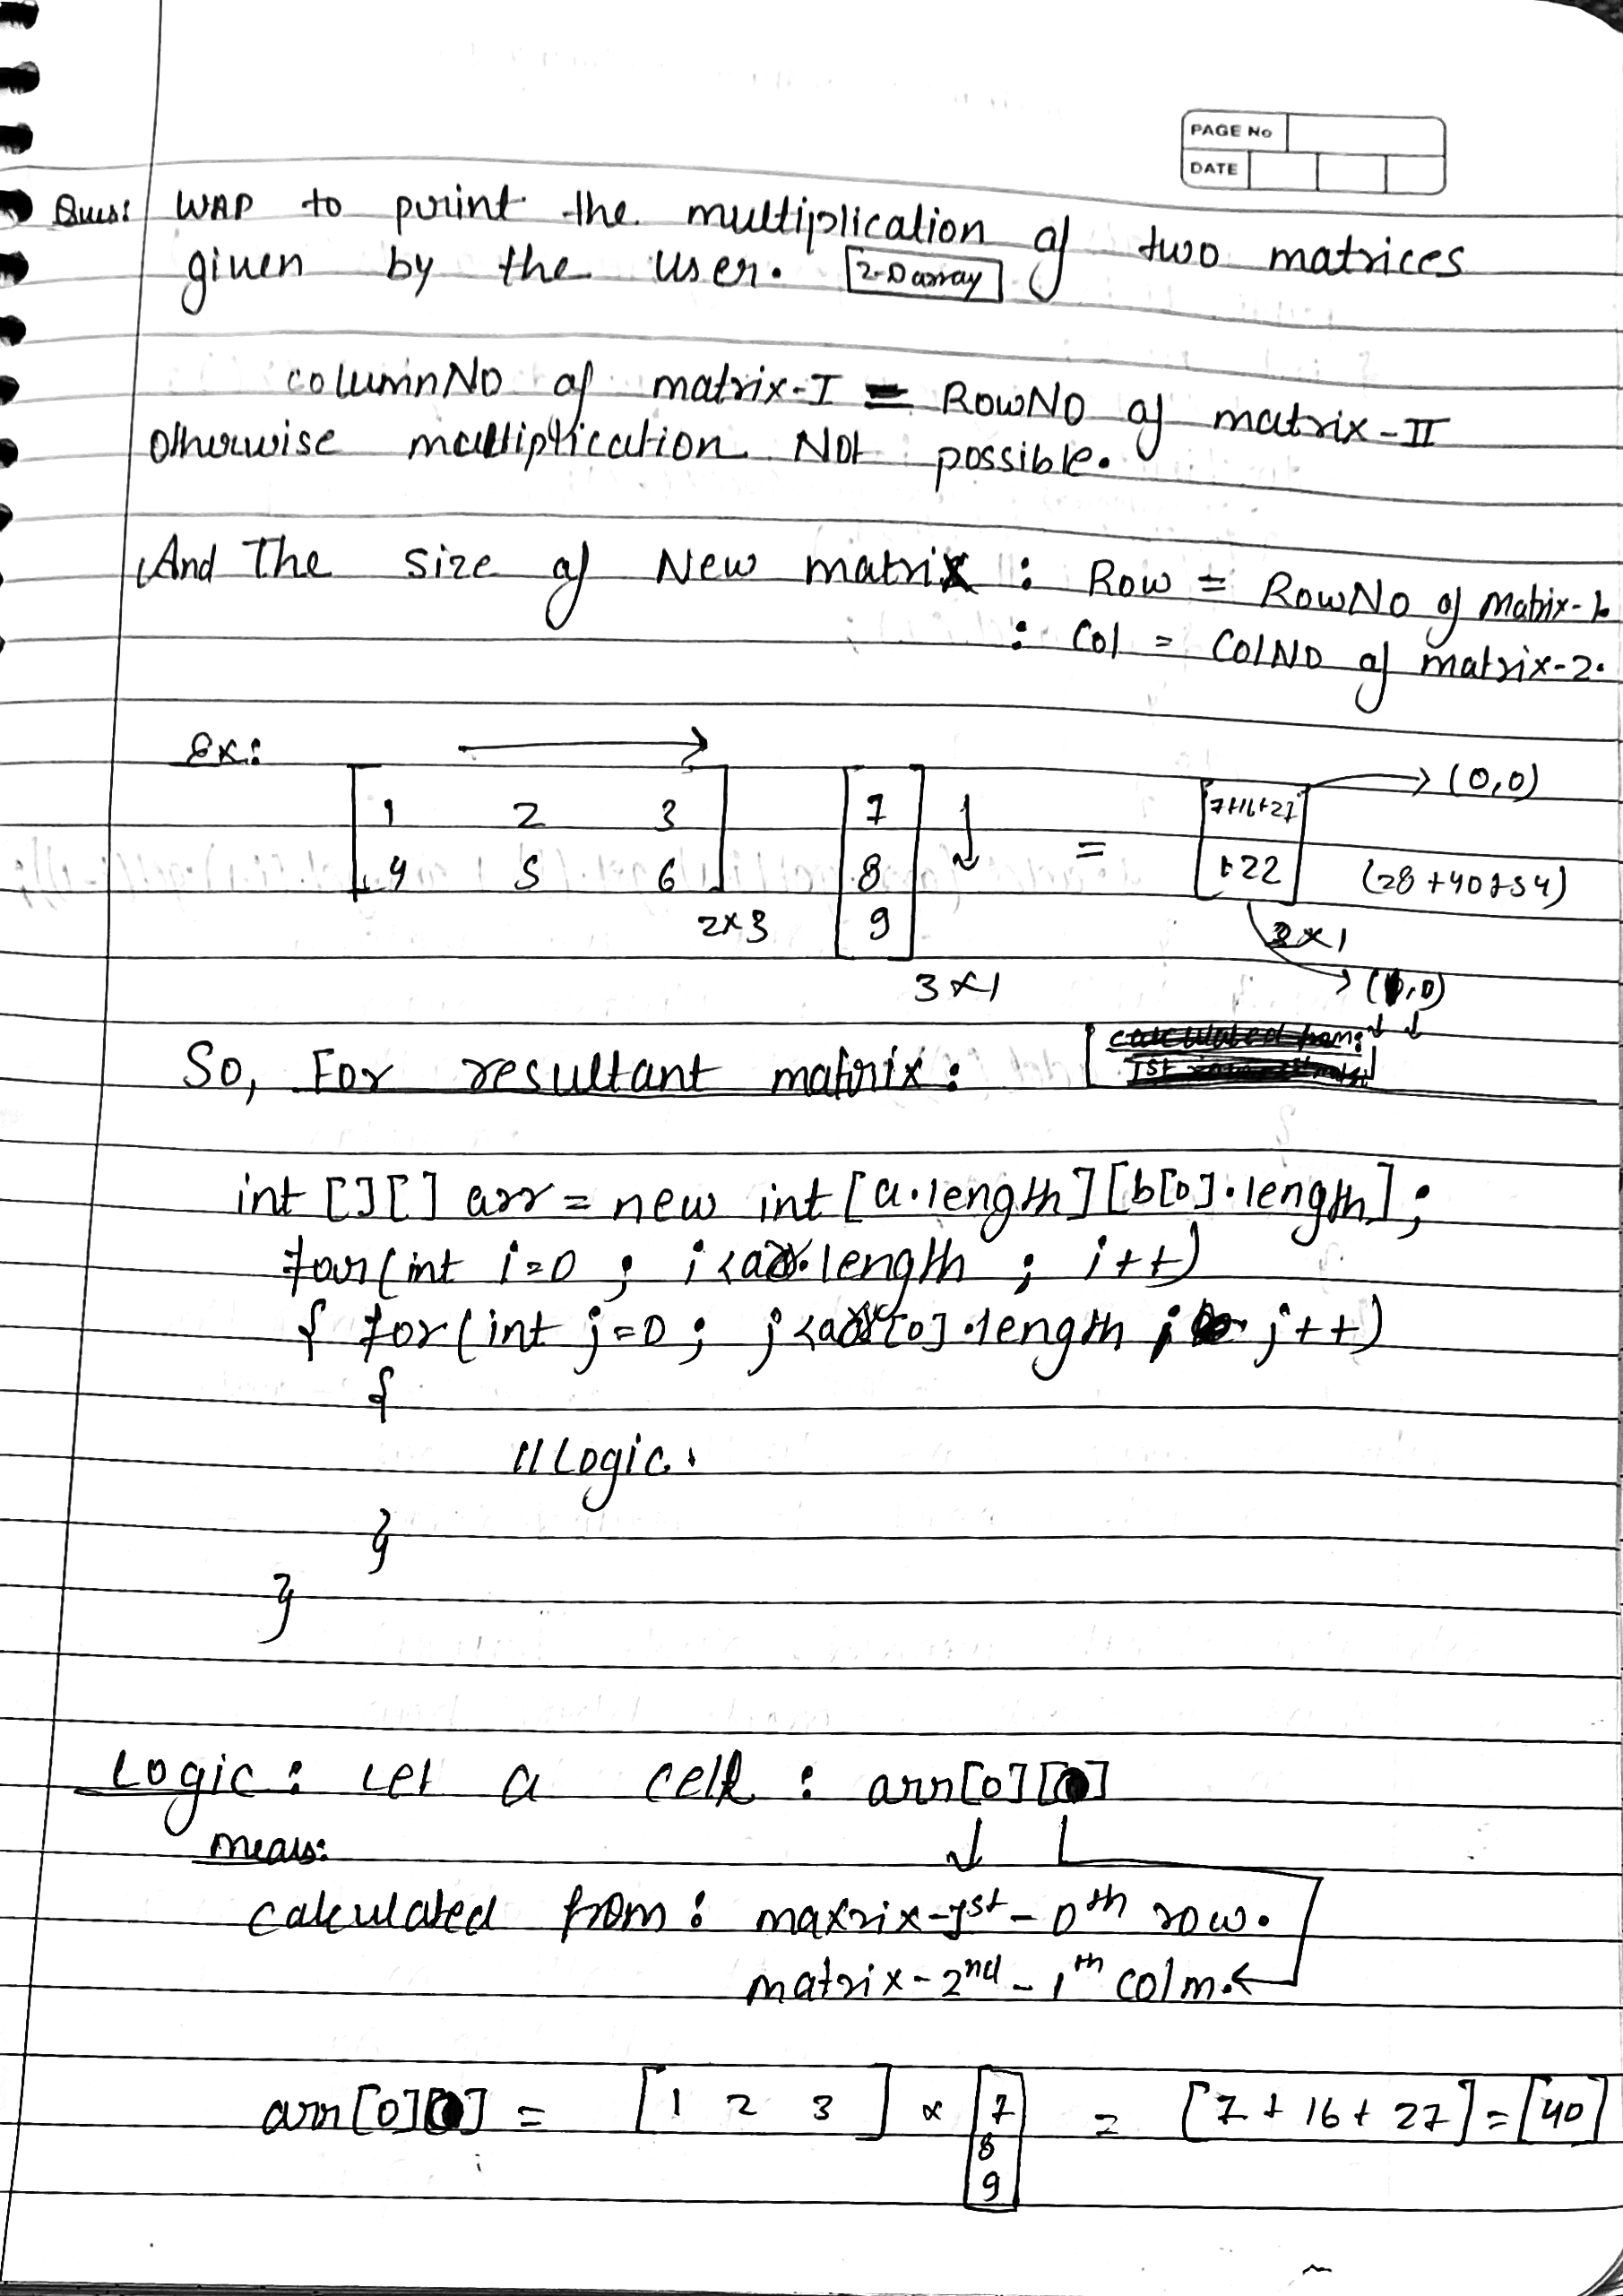 PAGE No
DATE
Ques: WAP to print the multiplication of two matrices
given by the user. 2-D array
columnNo of matrix-I = RowNo of matrix-II
otherwise multiplication Not possible.
And The size of New matrix : Row = RowNo of matrix-1.
: Col = ColNo of matrix-2.
Ex:
1 2 3 7 7+16+27 → (0,0)
4 5 6 8 = 122 (28+40+54)
2x3 9 2x1
3x1 (1,0)
So, For resultant matrix:
int [][] arr = new int [a.length][b[0].length];
for(int i=0 ; i<arr.length ; i++)
{ for(int j=0; j<arr[0].length ; j++)
{
// Logic.
}
}
Logic: Let a cell : arr[0][0]
means:
calculated from: matrix-1st - 0th row.
matrix-2nd - 1th colm.
arr[0][0] = [1 2 3] x [7 = [7+16+27] = [40]
8
9]